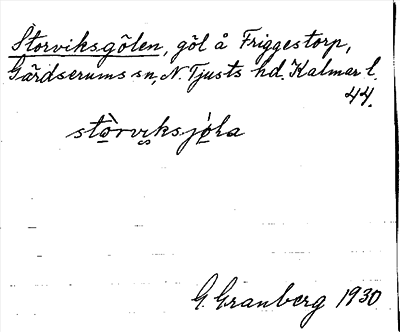 Storviksgölen, göl å Friggestorp,
Gärdserums sn, N. Tjusts hd. Kalmar l.
44.
stòrviksjóla
G. Granberg 1930